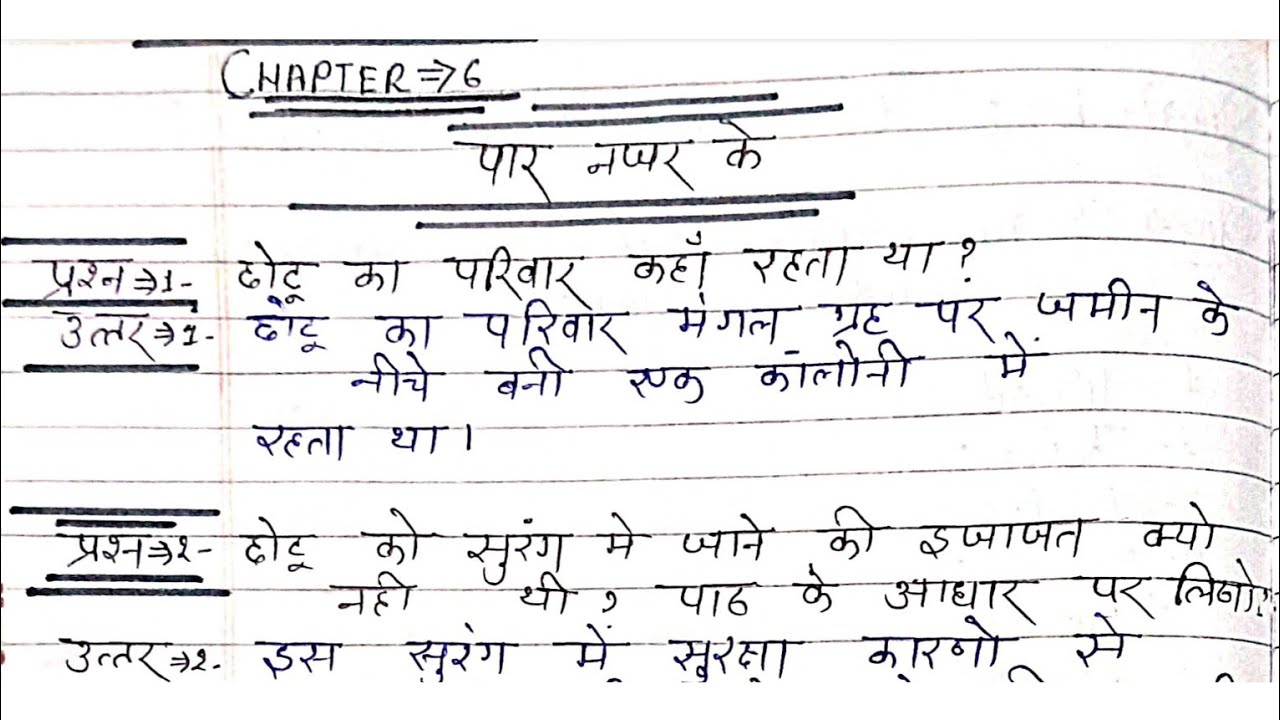 CHAPTER ⇒ 6
पार नज़र के
प्रश्न ⇒ 1- छोटू का परिवार कहाँ रहता था ?
उत्तर ⇒ 1- छोटू का परिवार मंगल ग्रह पर जमीन के
नीचे बनी एक कालोनी में
रहता था ।
प्रश्न ⇒ 2- छोटू को सुरंग मे जाने की इजाजत क्यो
नही थी ? पाठ के आधार पर लिखो
उत्तर ⇒ 2- इस सुरंग में सुरक्षा कारणो से